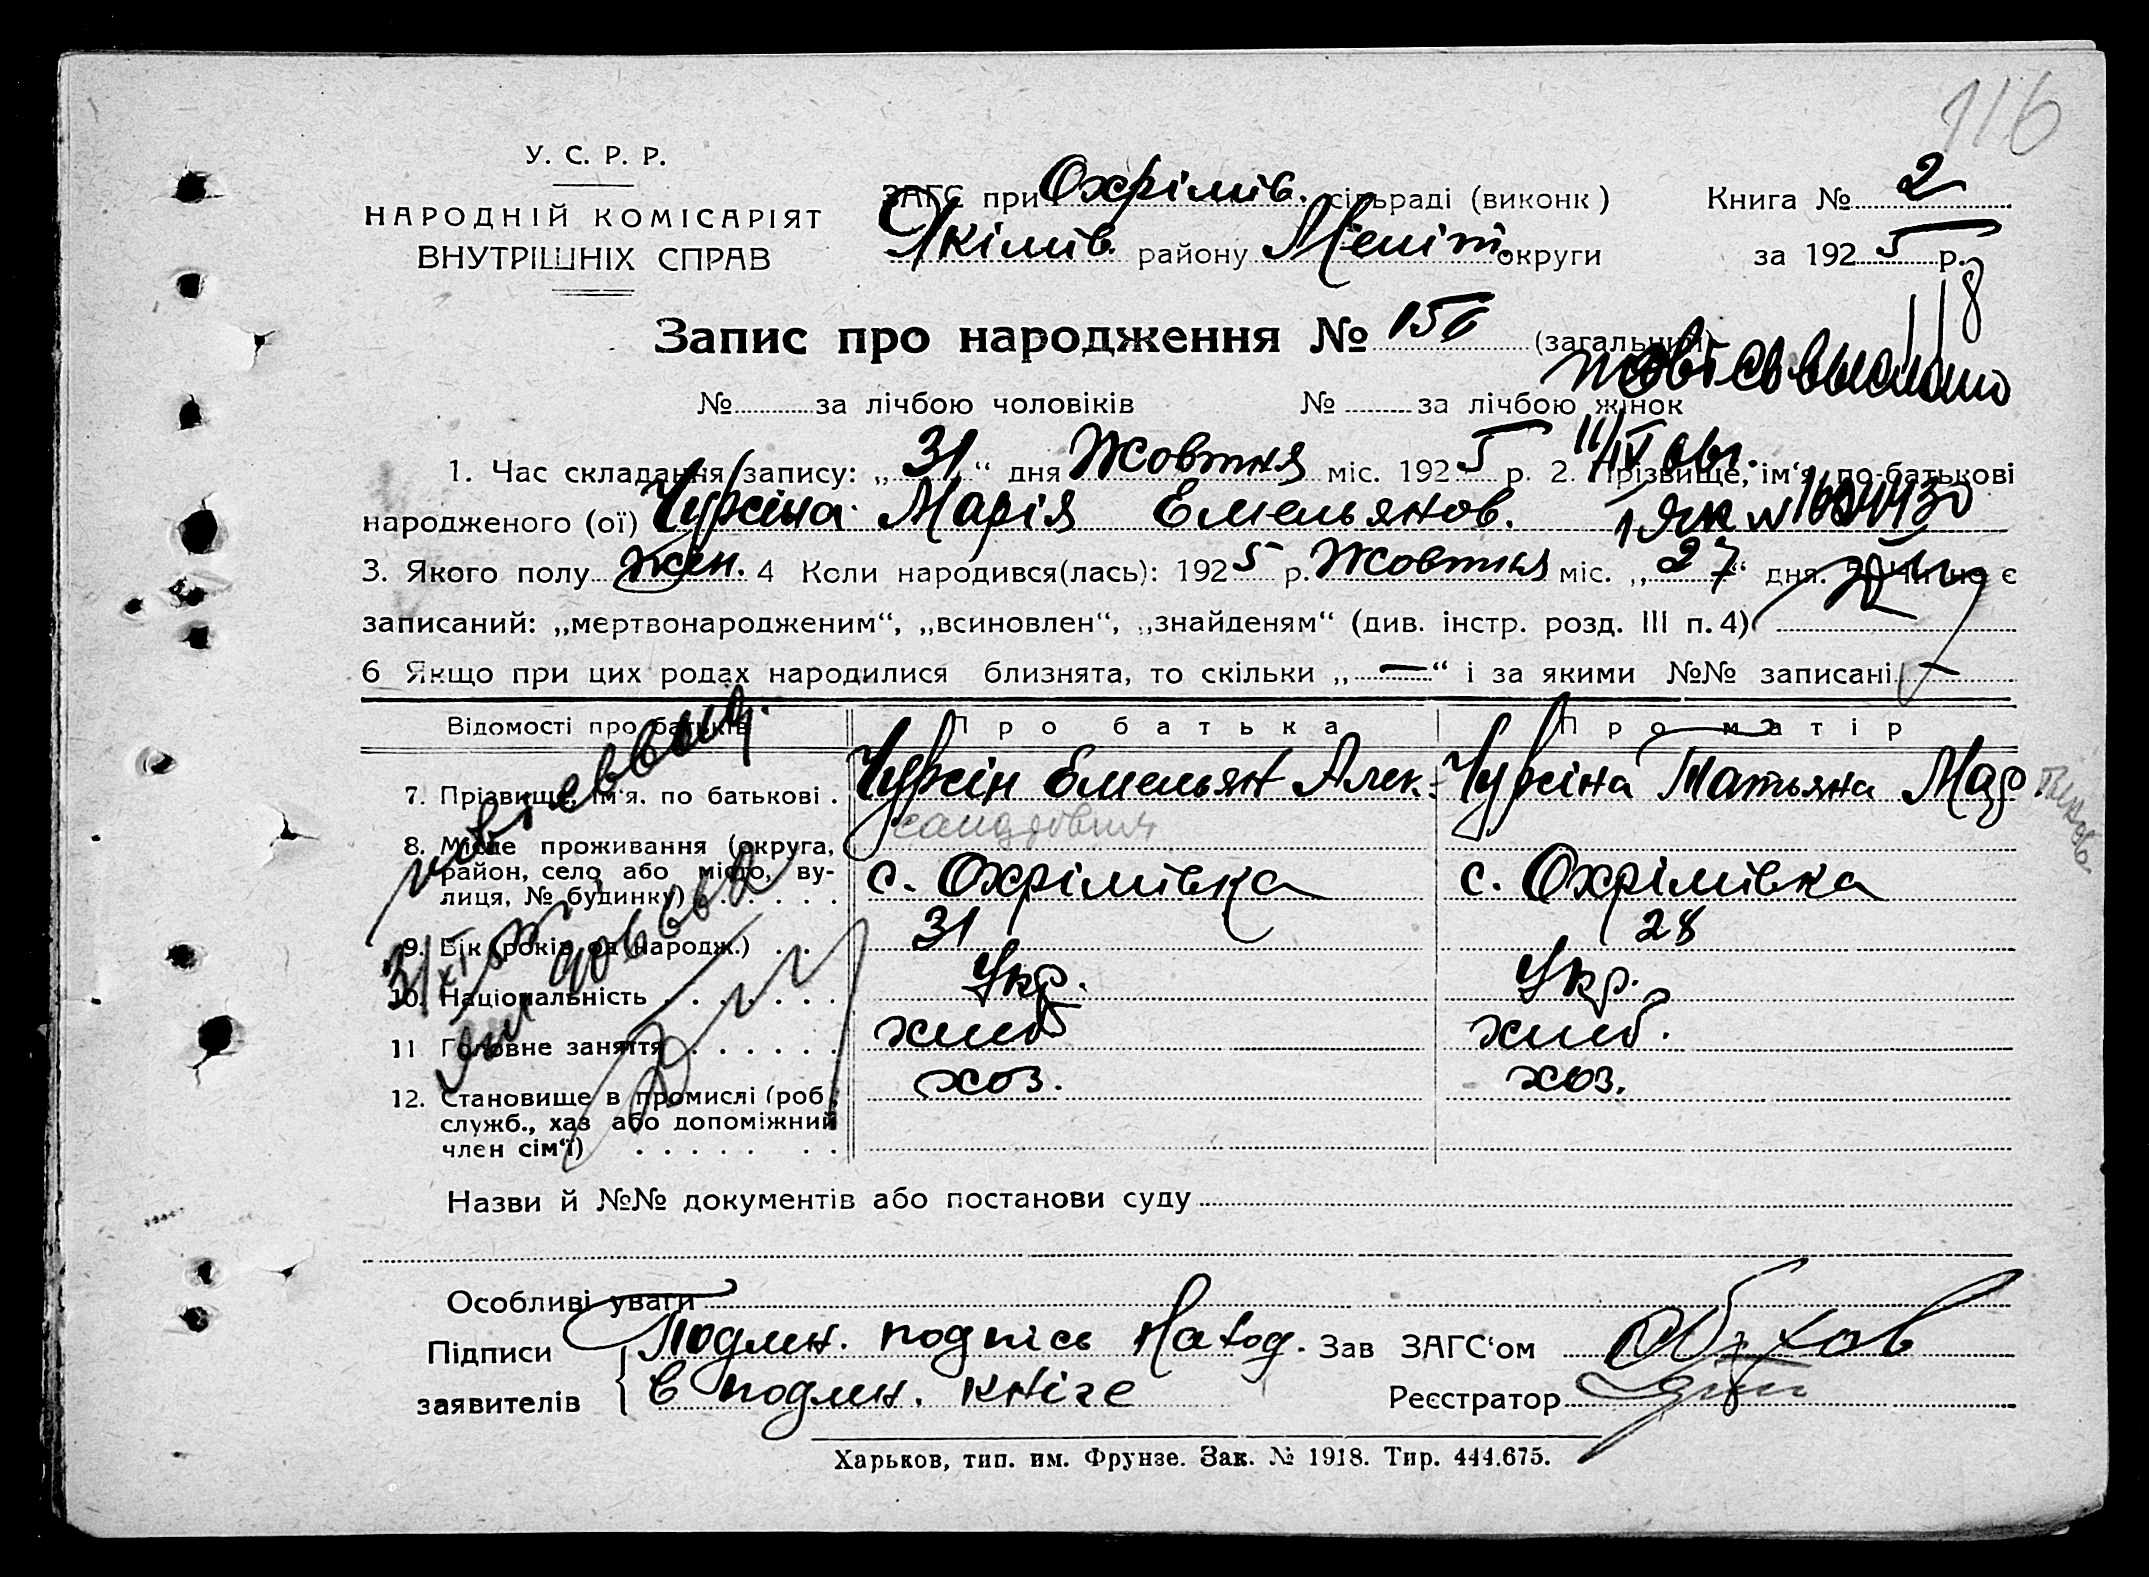 116
У. С. Р. Р.
НАРОДНІЙ КОМІСАРІЯТ
ВНУТРІШНІХ СПРАВ
ЗАГС при Охрімів. сільраді (виконк)
Якімів. району Меліт. округи
Книга № 2
за 1925 р.
118
Запис про народження № 156 (загальний)
№ за лічбою чоловіків № за лічбою жінок
1. Час складання запису: „31“ дня Жовтня міс. 1925 р. 2. Прізвище, ім‘я, по-батькові
народженого (ої) Чуркіна Марія Емельянов.
3. Якого полу жен. 4 Коли народився(лась): 1925 р. Жовтня міс. „27“ дня. 5. Чи не є
записаний: „мертвонародженим“, „всиновлен“, „знайденям“ (див. інстр. розд. III п. 4)
6 Якщо при цих родах народилися близнята, то скільки „—“ і за якими №№ записані —
Відомості про батьків Про батька Про матір
7. Прізвище, ім‘я, по батькові . Чуркін Емельян Алек- Чуркіна Татьяна Мар
сандрович
8. Місце проживання (округа,
район, село або місто, ву-
лиця, № будинку) . . . . . с. Охрімівка с. Охрімівка
9. Вік (років од народж.) . . . 31 28
10. Національність . . . . . . . Укр. Укр.
11 Головне заняття . . . . . . хліб хліб.
12. Становище в промислі (роб., хоз. хоз.
служб., хаз або допоміжний
член сім‘ї) . . . . . . .
Назви й №№ документів або постанови суду
Особливі уваги
Підписи Подлин. подпісь наход. Зав ЗАГС‘ом
заявителів в подлин. кніге Реєстратор
Харьков, тип. им. Фрунзе. Зак. № 1918. Тир. 444.675.